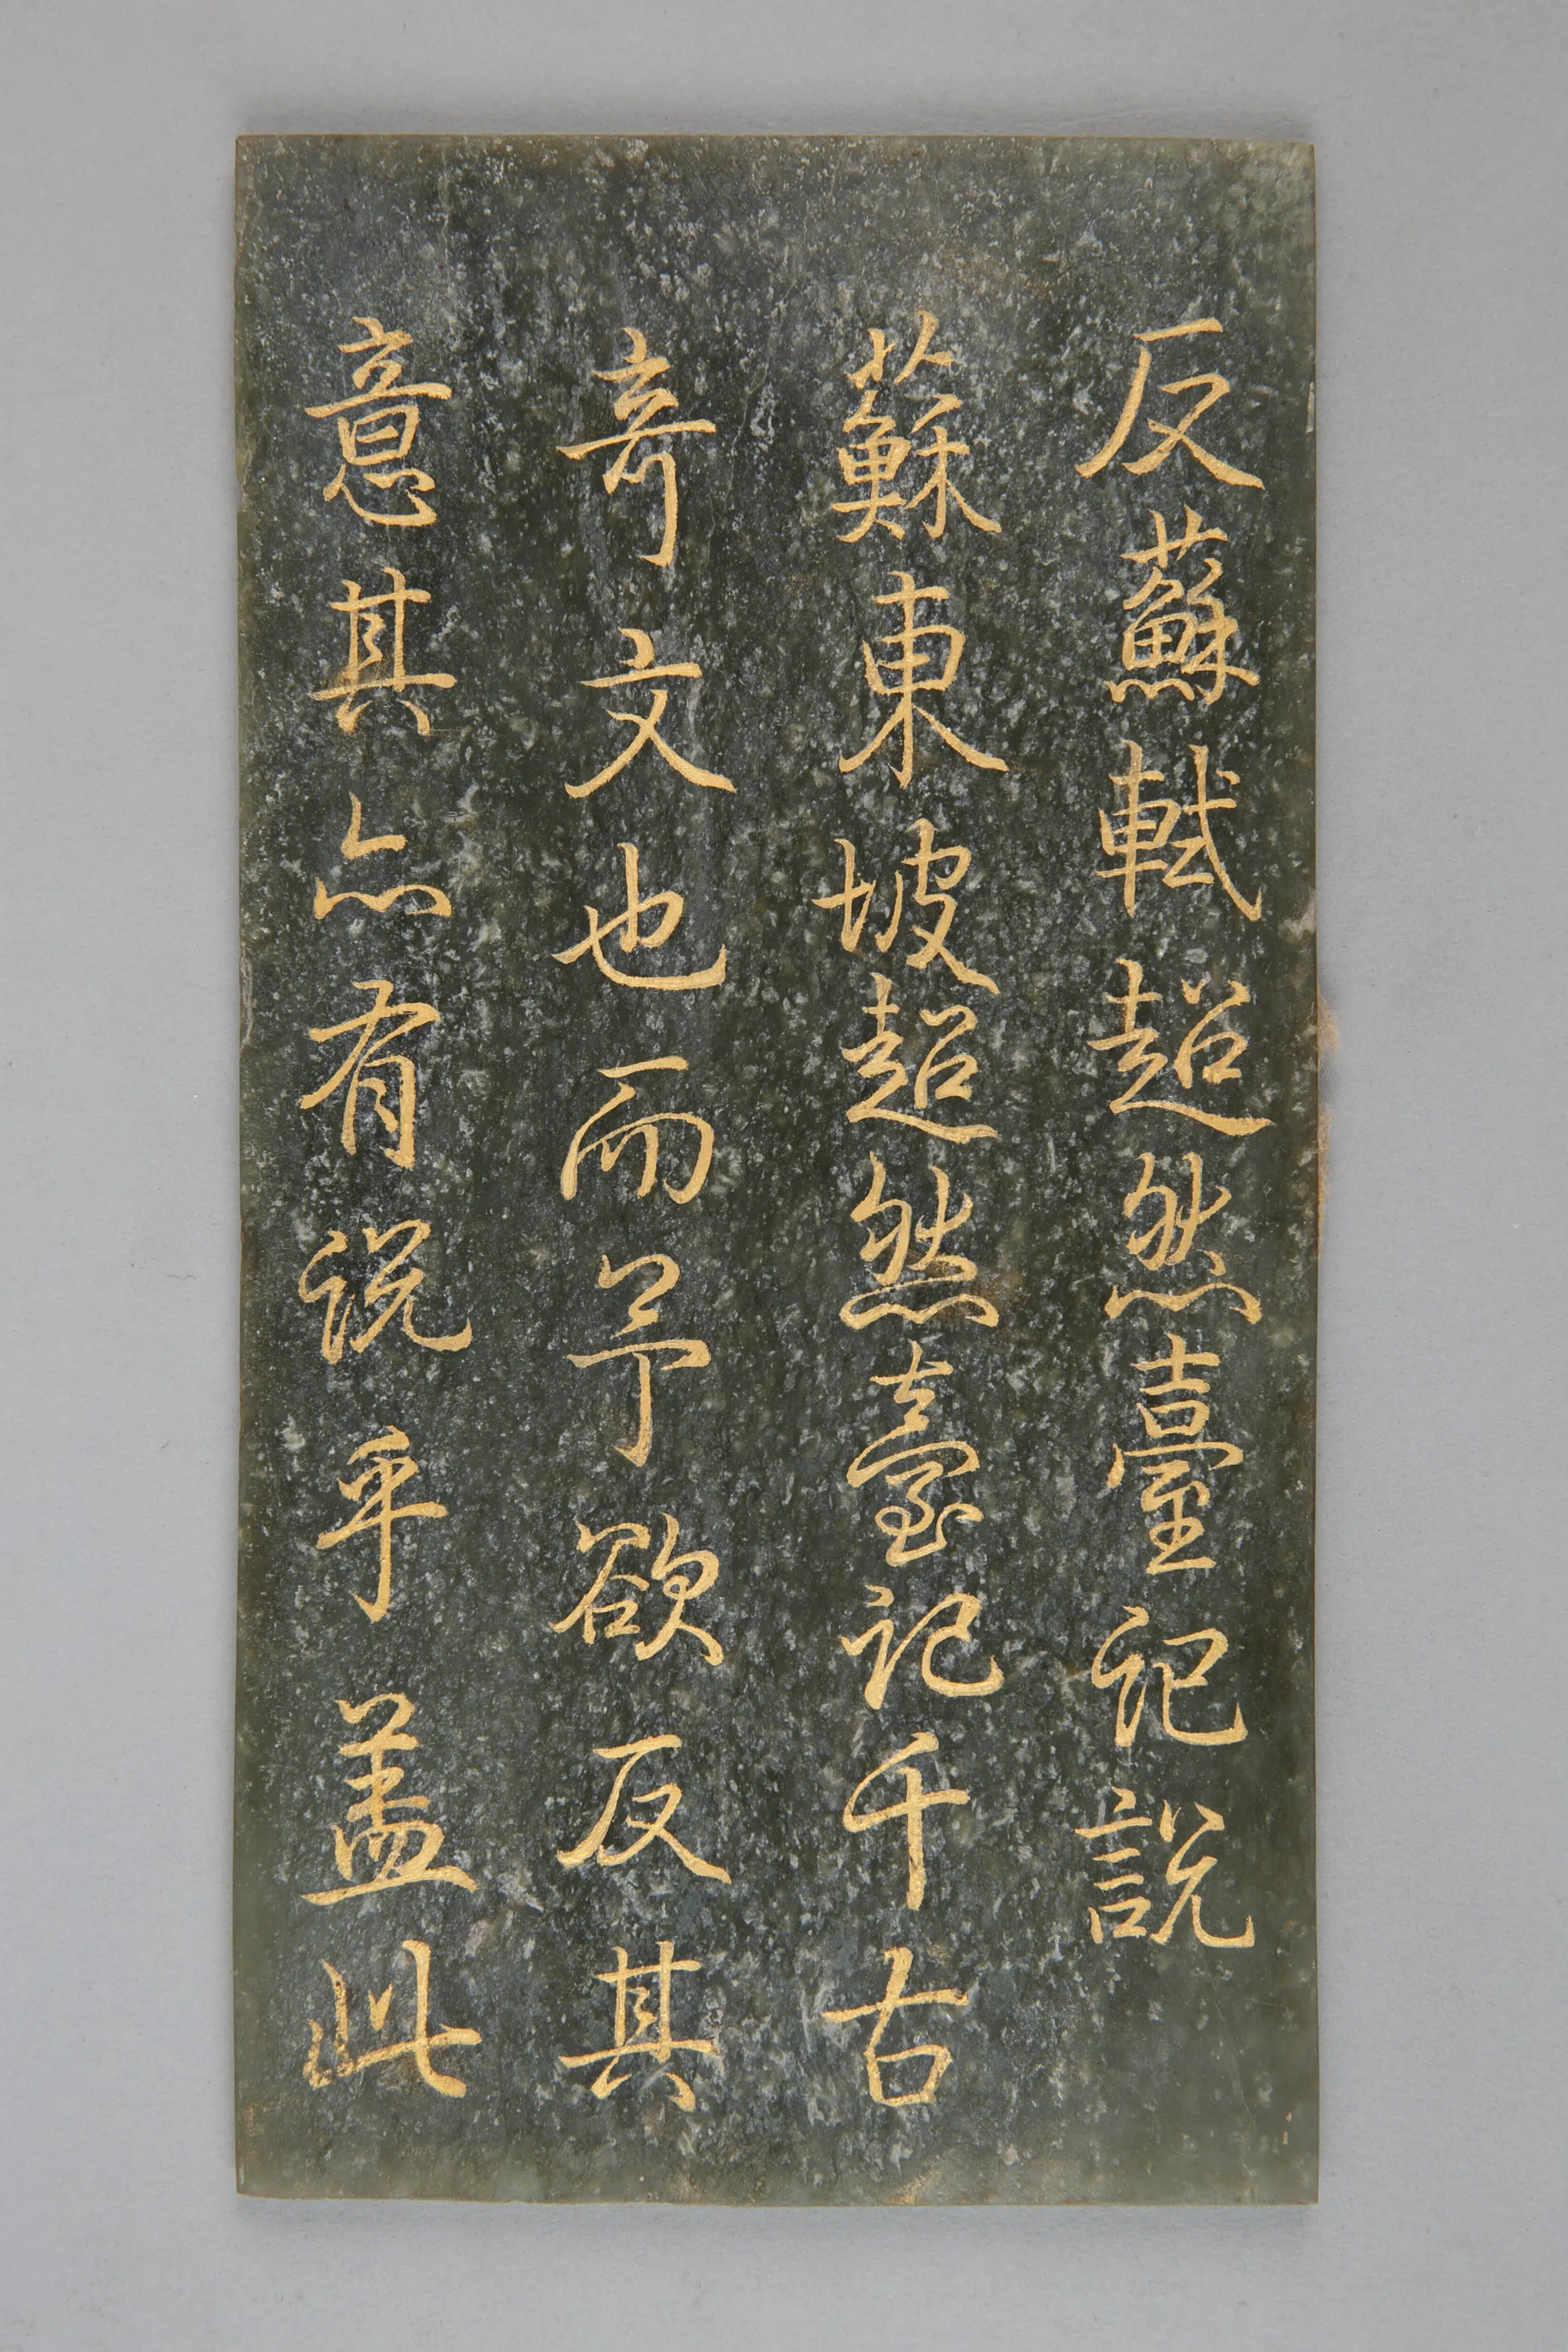 反蘇軾超然臺記說
蘇東坡超然臺記千古
竒文也而予欲反其
意其亦有説乎盖此